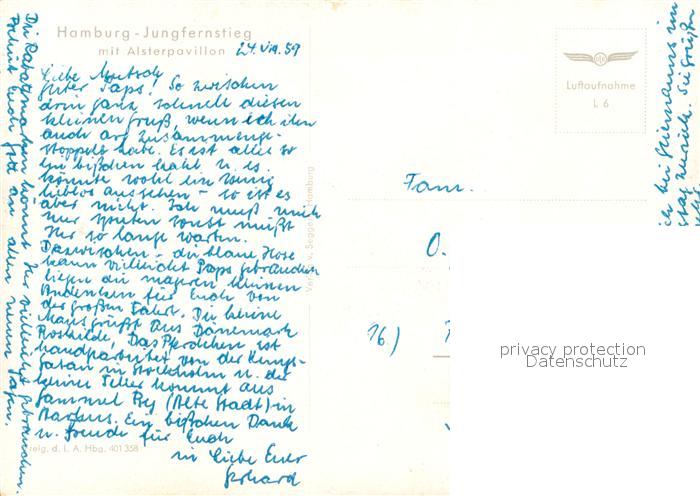 Hamburg - Jungfernstieg
mit Alsterpavillon
24. VIII. 59
Liebe Mutsch
guter Paps! So zwischen
drin ganz schnell diesen
kleinen Gruß, wenn ich ihn
auch arg zusammenge-
stoppelt habe. Es ist alles so
ein bißchen kahl u. es
könnte wohl ein wenig
lieblos aussehen - so ist es
aber nicht. Ich muß mich
nur sputen sonst müßt
Ihr so lange warten.
Dazwischen - die blaue Hose
kann vielleicht Paps gebrauchen
liegen die mageren kleinen
Andenken für Euch von
der großen Fahrt. Die kleine
grüßt aus Dänemark
Roskilde, Das Pferdchen ist
handgearbeitet von der Kungs-
gatan in Stockholm u. der
kleine Teller kommt aus
Gammel By (Alte Stadt) in
Aarhus. Ein bißchen Dank
u. Freude für Euch
in Liebe Euer
Gerhard
Die Rabattmarken könnt Ihr vielleicht gebrauchen.
Behüt Euch Gott an allen neuen Tagen.
Verlag v. Seggern Hamburg
freig. d. L. A. Hbg. 401358
Luftaufnahme
L 6
Fam.
O.
16.)
ich bei
zurück. Sie grüßen
privacy protection
Datenschutz